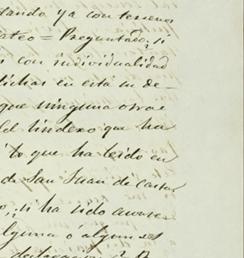 tando ya con terrenos
ateo = Preguntado, si
s con individualidad
dichas en está su de-
que ninguna otras
el lindero que ha
to que ha leido en
de San Juan de
si ha sido
alguna ó algunas